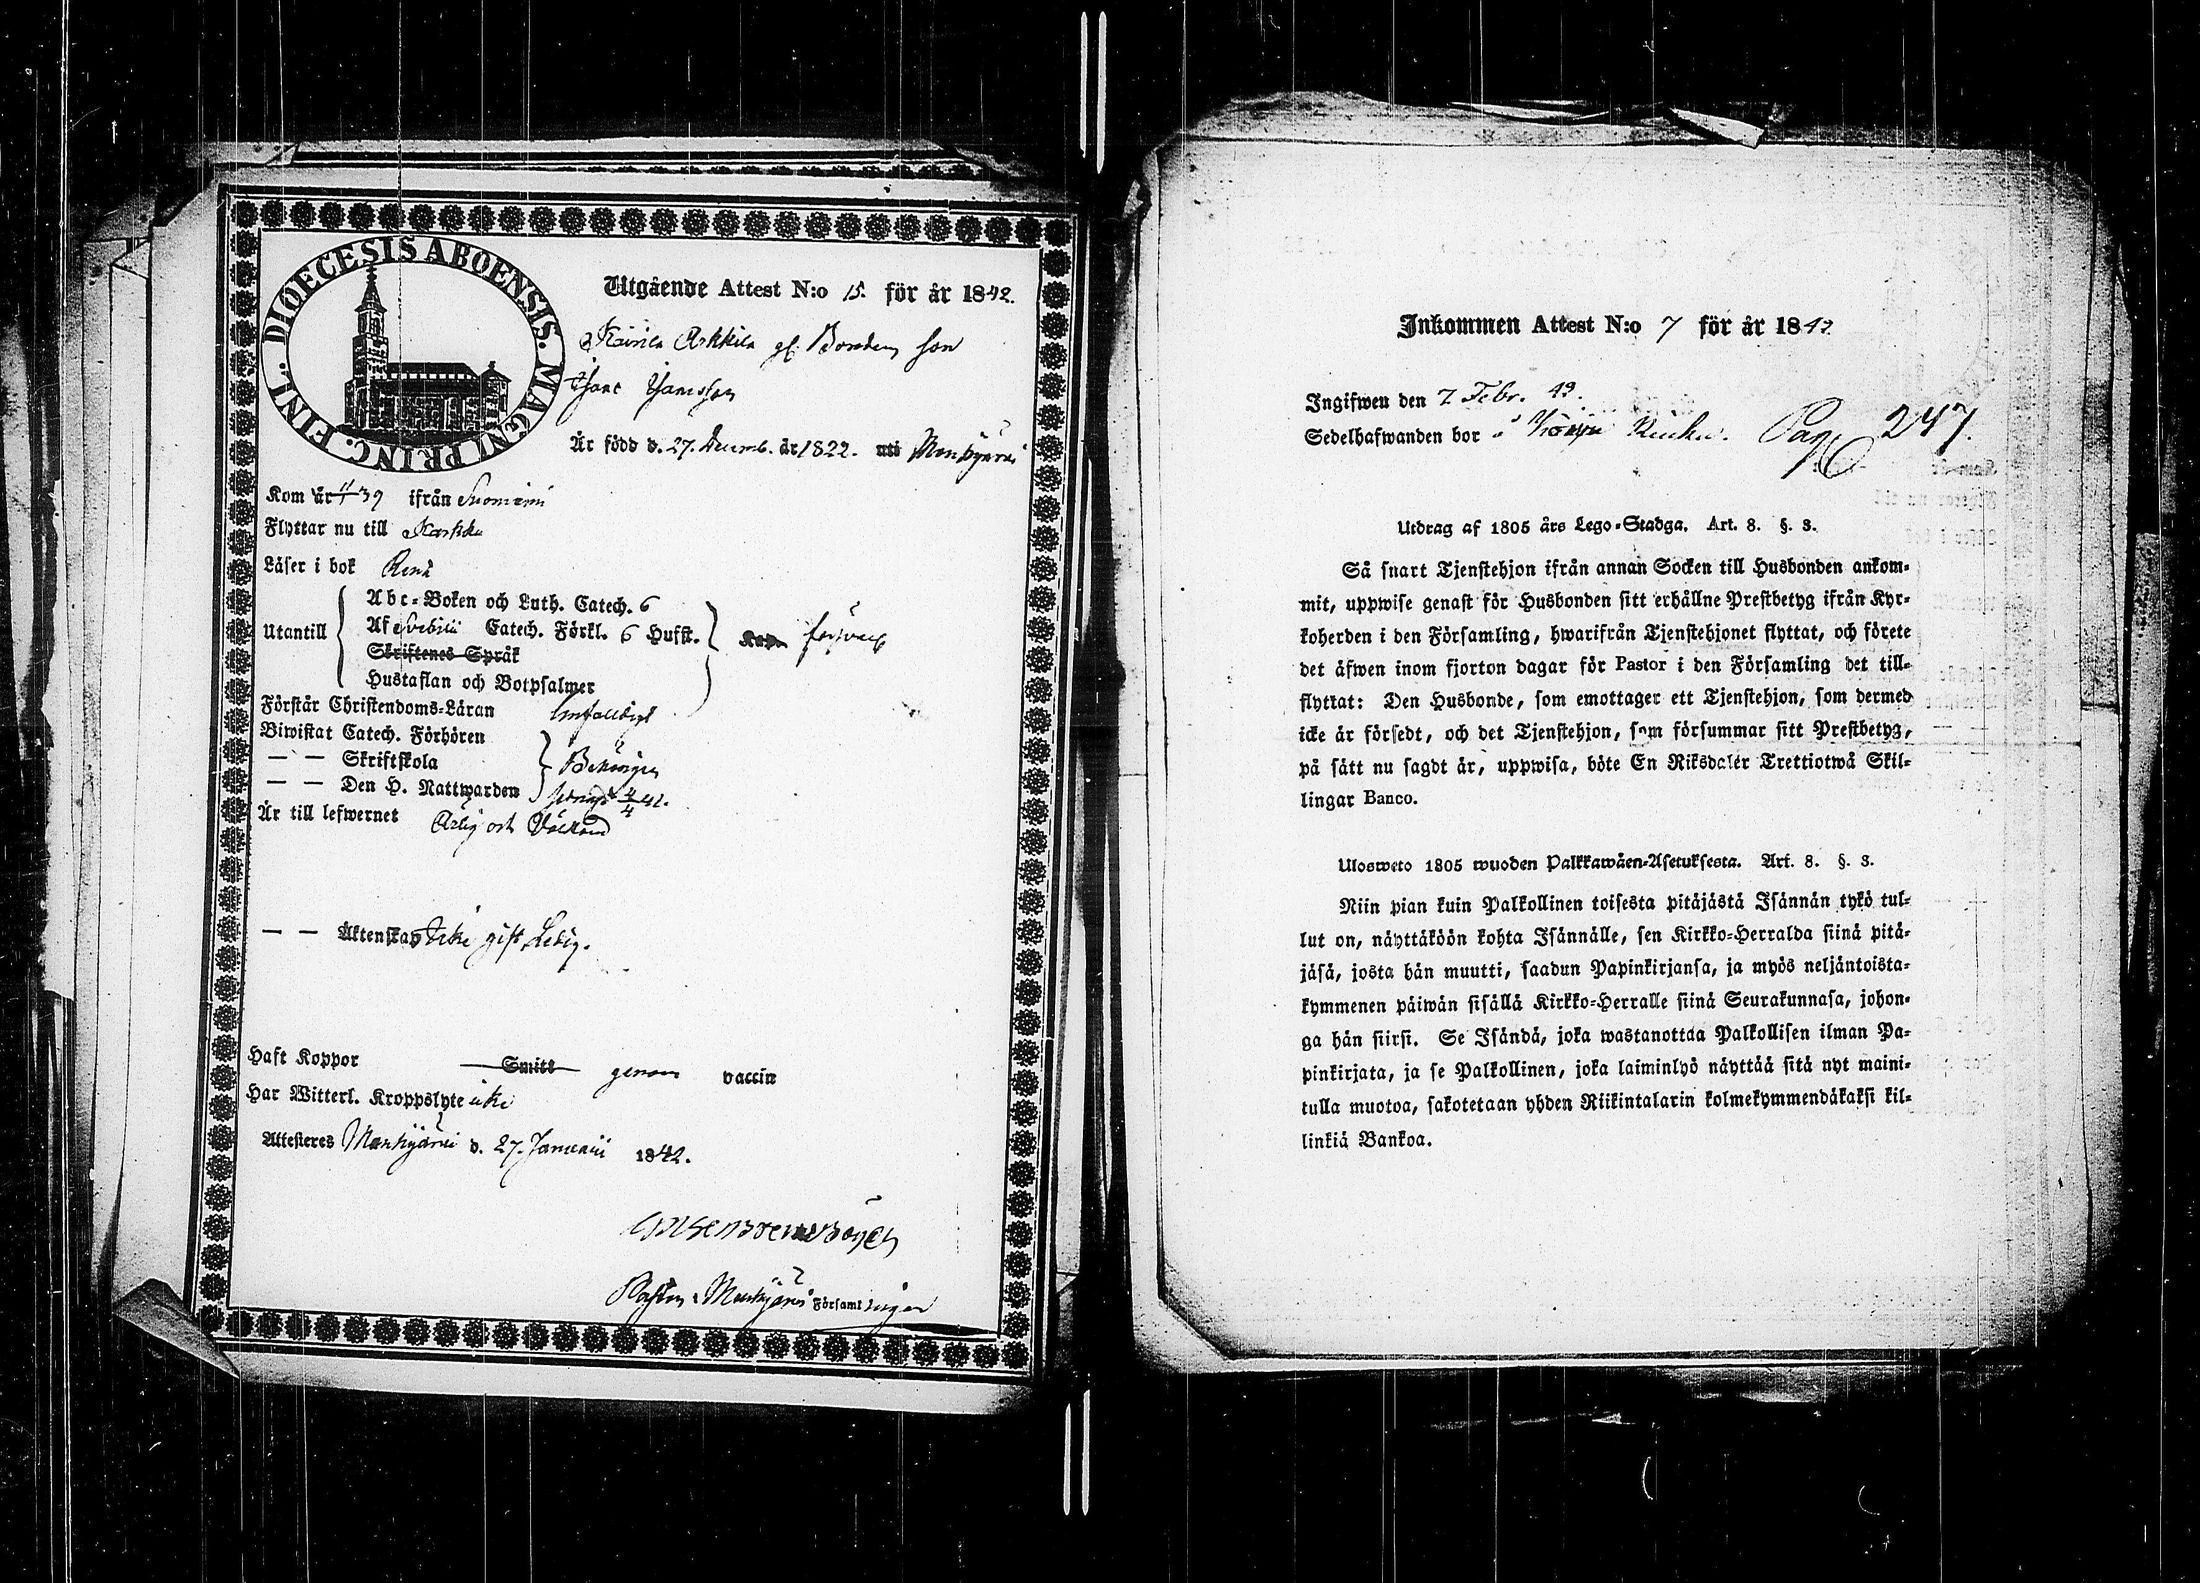 DIOECESIS ABOENSIS. MAGNI PRINC. FINL.
Utgående Attest N:o 15. för år 1842.
Kairila Arkkila gl. Bondens son
Är född d. 27. Decemb. år 1822. uti Mouhijärvi
Kom år 39 ifrån Suoniemi
Flyttar nu till Karkku
Läser i bok Rent
Utantill
Abc-Boken och Luth. Catech. 6
Af Svebilii Catech. Förkl. 6 Hufst.
försvarl
Skriftenes Språk
Hustaflan och Botpsalmer
Förstår Christendoms-Läran Enfaldigt
Biwistat Catech. Förhören
— — Skriftskola
Behörigen
— — Den H. Nattwarden
4/4 42.
Är till lefwernet Ärlig och Välkänd
— — Äktenskap Icke gift, Ledig.
Haft Koppor Smitt genom vaccin
Har Witterl. Kroppslyte icke
Attesteres Mouhijärvi d. 27. Januarii 1842.
Pastor i Mouhijärvi Församlingar
Inkommen Attest N:o 7 för år 1842
Ingifwen den 7 Febr. 42.
Sedelhafwanden bor i Pag 247.
Utdrag af 1805 års Lego-Stadga. Art. 8. §. 3.
Så snart Tjenstehjon ifrån annan Socken till Husbonden ankom-
mit, uppwise genast för Husbonden sitt erhållne Prestbetyg ifrån Kyr-
koherden i den Församling, hwarifrån Tjenstehjonet flyttat, och förete
det äfwen inom fjorton dagar för Pastor i den Församling det till-
flyttat: Den Husbonde, som emottager ett Tjenstehjon, som dermed
icke är försedt, och det Tjenstehjon, som försummar sitt Prestbetyg,
på sätt nu sagdt är, uppwisa, böte En Riksdaler Trettiotwå Skil-
lingar Banco.
Ulosweto 1805 wuoden Palkkawäen-Asetuksesta. Art. 8. §. 3.
Niin pian kuin Palkollinen toisesta pitäjästä Isännän tykö tul-
lut on, näyttäköön kohta Isännälle, sen Kirkko-Herralda siinä pitä-
jäsä, josta hän muutti, saadun Papinkirjansa, ja myös neljäntoista-
kymmenen päiwän sisällä Kirkko-Herralle siinä Seurakunnasa, johon-
ga hän siirsi. Se Isändä, joka wastanottaa Palkollisen ilman Pa-
pinkirjata, ja se Palkollinen, joka laiminlyö näyttää sitä nyt maini-
tulla muotoa, sakotetaan yhden Riikintalarin kolmekymmendäkaksi kil-
linkiä Bankoa.